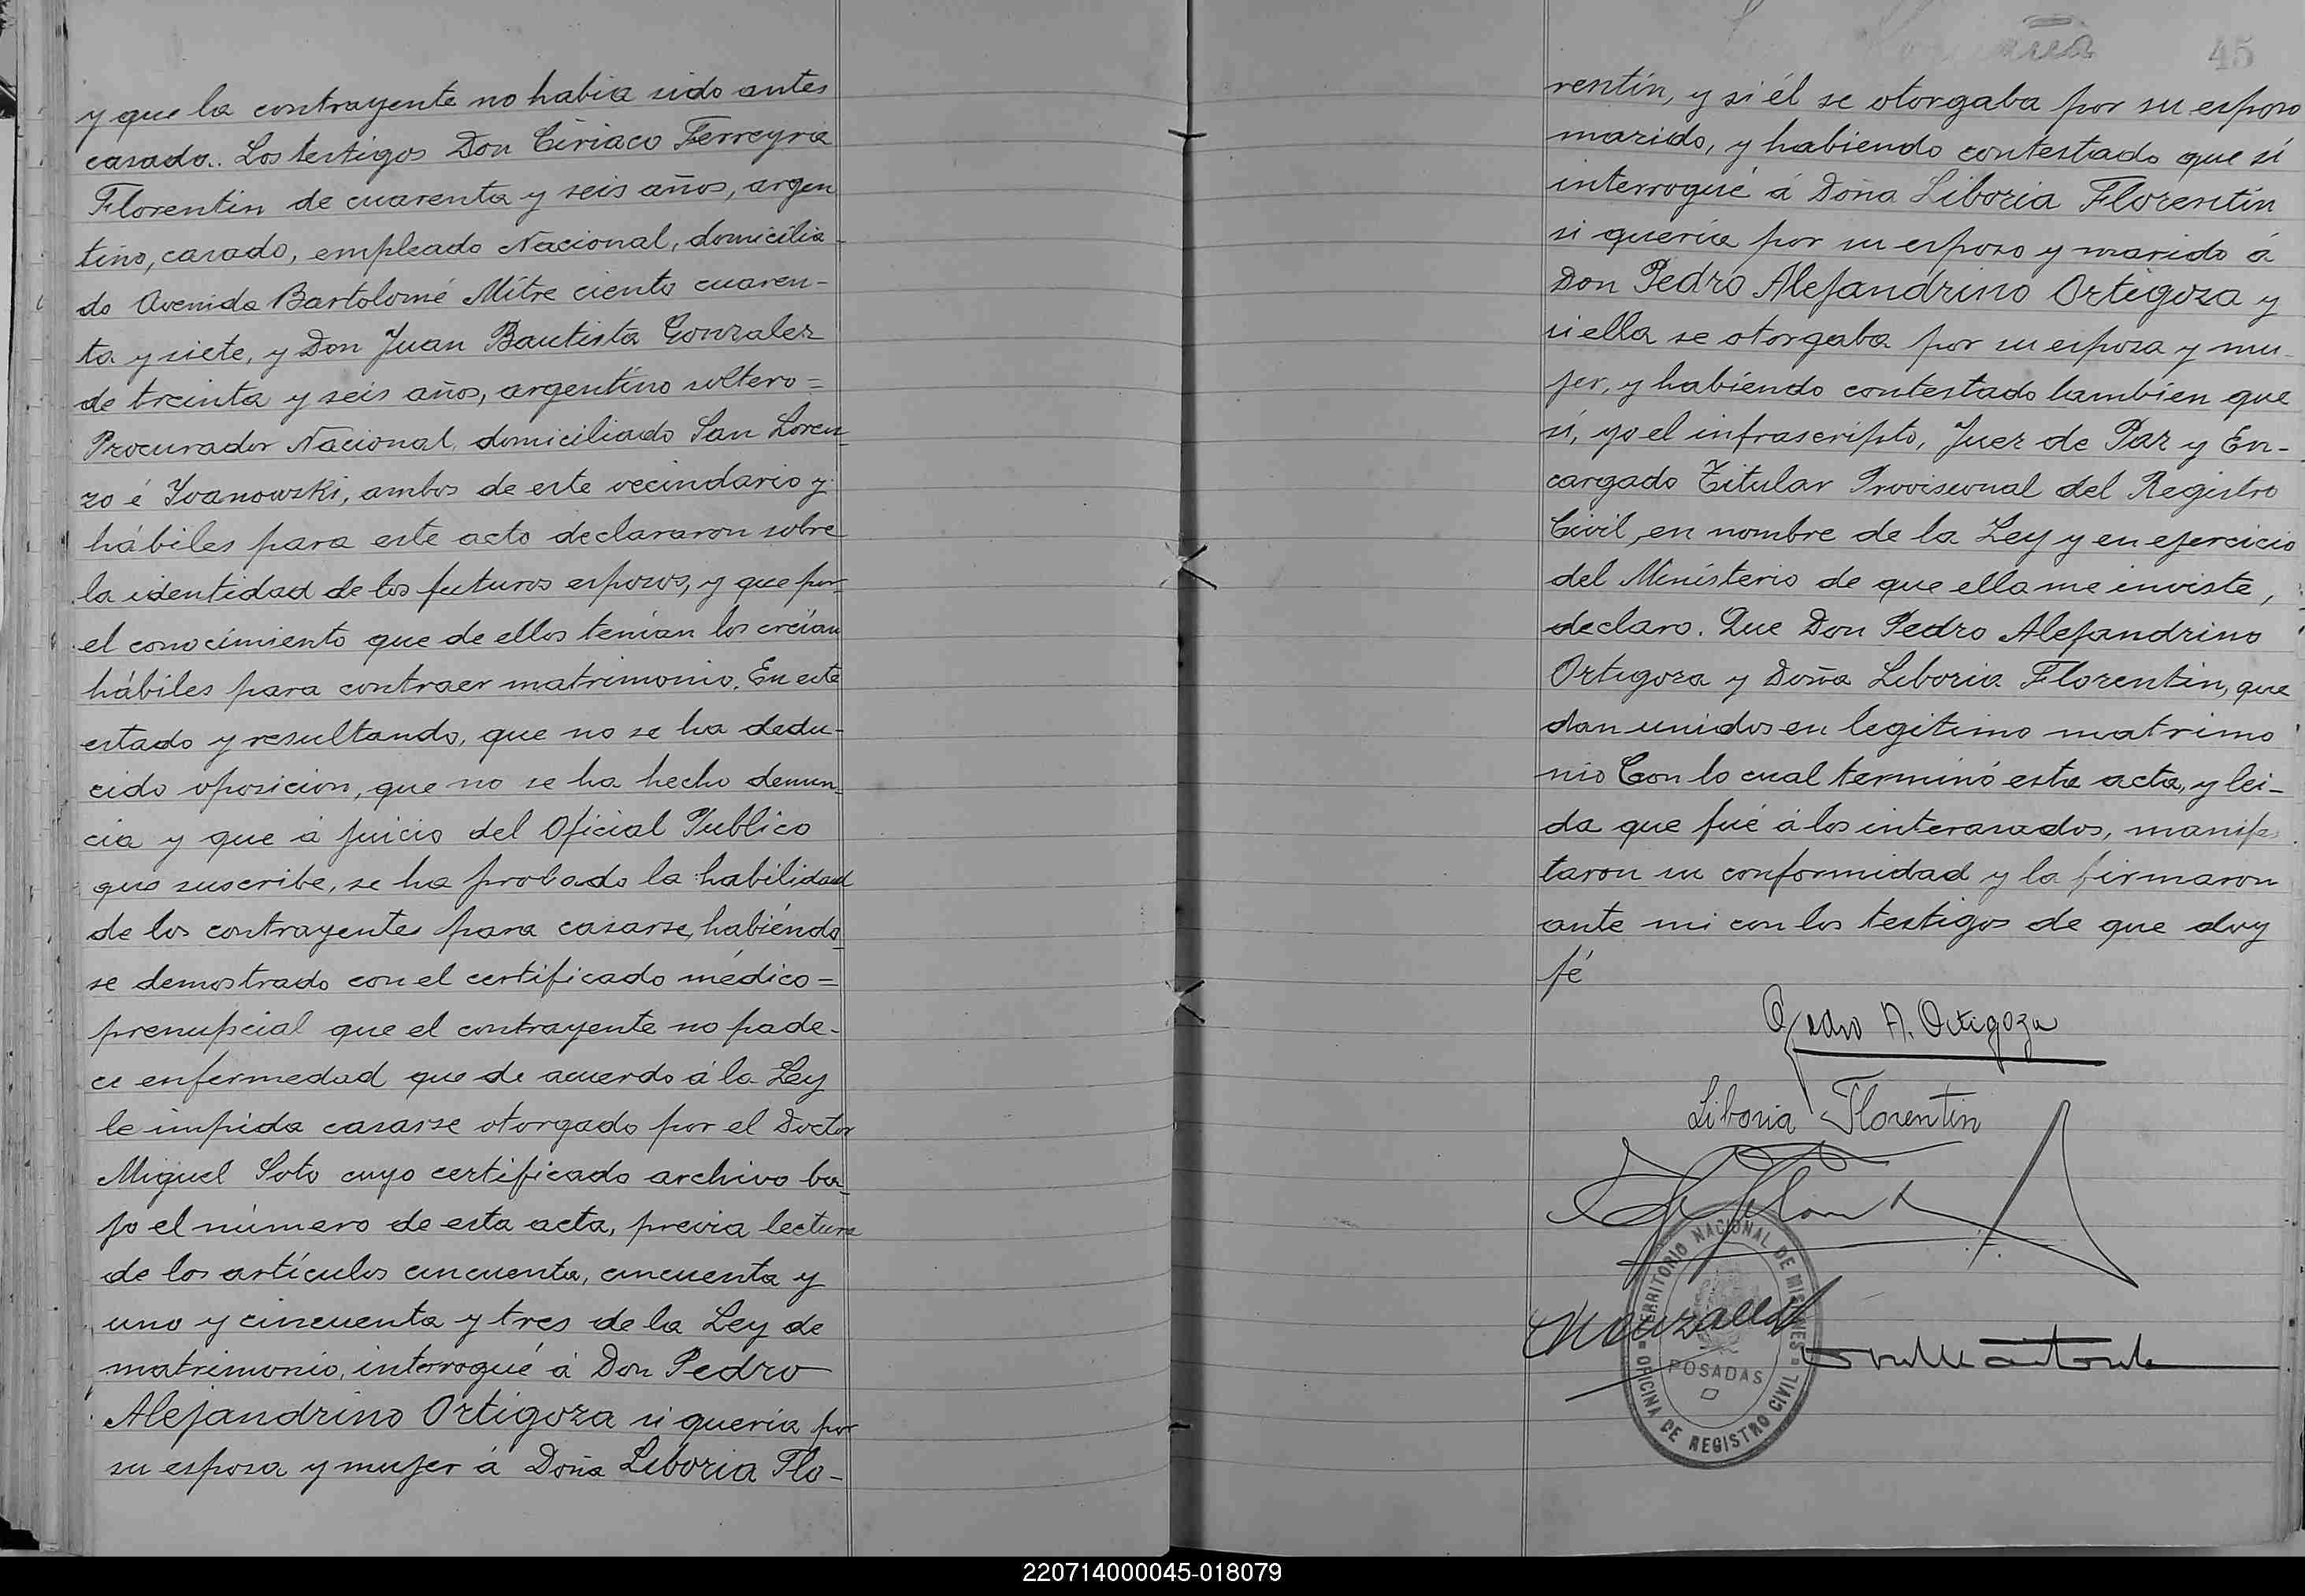 y que la contrayente no habia sido antes
casada. Los testigos Don Ciriaco Ferreyra
Florentin de cuarenta y seis años, argen
tino, casado, empleado Nacional, domicilia-
do Avenida Bartolomé Mitre ciento cuaren-
ta y siete, y Don Juan Bautista Gonzalez
de treinta y seis años, argentino soltero=
Procurador Nacional, domiciliado San Loren-
zo é Ivanowski, ambos de este vecindario y
hábiles para este acto declararon sobre
la identidad de los futuros esposos, y que por
el conocimiento que de ellos tenían los creían
hábiles para contraer matrimonio. En este
estado y resultando, que no se ha dedu-
cido oposicion, que no se ha hecho denun-
cia y que á juicio del Oficial Publico
que suscribe, se ha probado la habilidad
de los contrayentes para casarse, habiéndo
se demostrado con el certificado médico=
prenupcial que el contrayente no pade-
ce enfermedad que de acuerdo á la Ley
le impida casarse otorgado por el Doctor
Miguel Soto cuyo certificado archivo ba-
jo el número de esta acta, previa lectura
de los artículos cincuenta, cincuenta y
uno y cincuenta y tres de la Ley de
matrimonio, interrogué á Don Pedro
Alejandrino Ortigoza si quería por
su esposa y mujer á Doña Liboria Flo-
45
rentín, y si él se otorgaba por su esposo
marido, y habiendo contestado que sí
interrogué á Doña Liboria Florentín
si quería por su esposo y marido á
Don Pedro Alejandrino Ortigoza y
si ella se otorgaba por su esposa y mu-
jer, y habiendo contestado tambien que
sí, yo el infrascripto, Juez de Paz y En-
cargado Titular Provisional del Registro
Civil, en nombre de la Ley y en ejercicio
del Ministerio de que ella me inviste,
declaro. Que Don Pedro Alejandrino
Ortigoza y Doña Liboria Florentin, que
dan unidos en legitimo matrimo
nio Con lo cual terminó esta acta, y lei-
da que fué á los interasados, manifes
taron su conformidad y la firmaron
ante mi con los testigos de que doy
fé
Pedro A. Ortigoza
Liboria Florentin
TERRITORIO NACIONAL DE MISIONES
POSADAS
OFICINA DE REGISTRO CIVIL
220714000045-018079